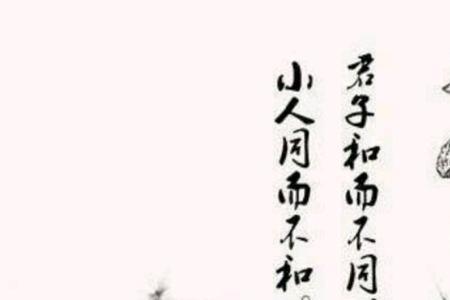 君子和而不同
小人同而不和。